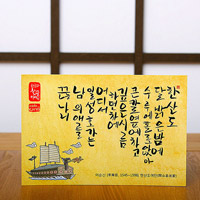 한산도
달 밝은 밤에
수루에 홀로 앉아
큰 칼 옆에 차고
깊은 시름
하던 차에
어디서
일성호가는
남의 애를
끊나니
이순신 (李舜臣, 1545~1598)